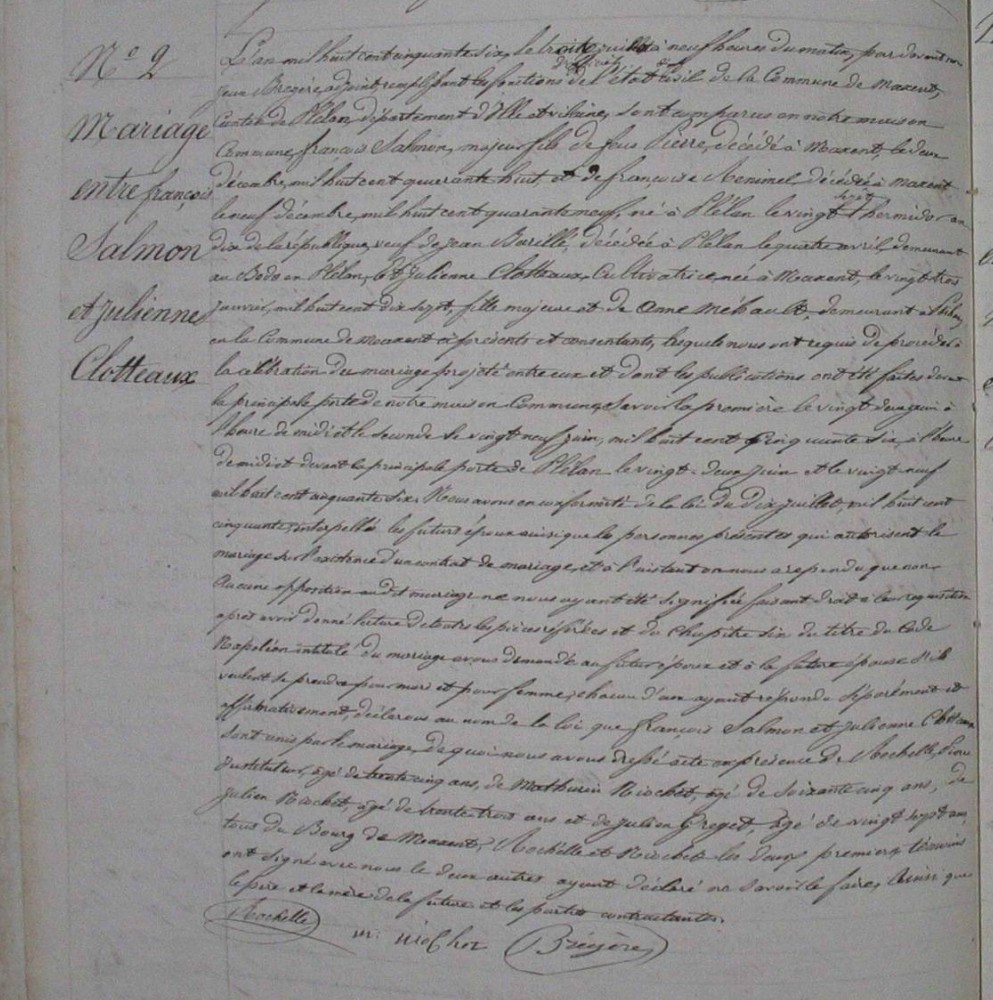 N° 2
Mariage
entre françois
Salmon
et Julienne
Clotteaux
L'an mil huit cent cinquante six, le trois juillet à neuf heures du matin, par devant nous
Brégère, adjoint remplissant les fonctions d'officier de l'état civil de la Commune de Maxent,
Canton de Plélan, département d'Ille et vilaine, sont comparus en notre maison
Commune, françois Salmon, majeur fils de feus Pierre, décédé à Maxent, le deux
décembre, mil huit cent quarante huit, et de françoise décédée à Maxent
le neuf décembre, mil huit cent quarante neuf, né à Plélan le vingt sept thermidor an
dix de la république, veuf de jean Barille, décédée à Plélan le quatre avril, demeurant
au en Plélan, et Julienne Clotteaux, Cultivatrice, née à Maxent, le vingt trois
janvier, mil huit cent dix sept, fille majeure et de anne Mébault, demeurant
en la Commune de Maxent ci présents et consentants, lesquels nous ont requis de procéder à
la célébration du mariage projeté entre eux et dont les publications ont été faites devant
la principale porte de notre maison Commune, Savoir la première le vingt deux juin à
l'heure de midi et la seconde le vingt neuf juin, mil huit cent cinquante six à l'heure
de midi et devant la principale porte de Plélan le vingt-deux juin et le vingt neuf
mil huit cent cinquante six. Nous avons en conformité de la loi du dix juillet, mil huit cent
cinquante, interpellé les futurs époux ainsi que les personnes présentes qui autorisent le
mariage sur l'existence d'un contrat de mariage, et à l'instant on nous a répondu que non
Aucune opposition audit mariage ne nous ayant été signifiée faisant droit à leur réquisition
après avoir donné lecture de toutes les pièces et du Chapitre six du titre du Code
Napoléon intitulé du mariage avons demandé au futur époux et à la future épouse s'ils
veulent se prendre pour mari et pour femme, chacun d'eux ayant répondu séparément et
affirmativement, déclarons au nom de la loi que françois Salmon et Julienne Clotteaux
sont unis par le mariage, de quoi nous avons dressé acte en présence de Rochelle,
Instituteur, âgé de trente cinq ans, de Mathurin Riochet, âgé de soixante cinq ans, de
Julien Riochet, âgé de trente trois ans et de Julien Greget, âgé de vingt sept ans
tous du Bourg de Maxent, Rochelle et Riochet les deux premiers témoins
ont signé avec nous le deux autres ayant déclaré ne savoir le faire, Ainsi que
le père et la mère de la future et les parties contractantes.
Rochelle
Brégère